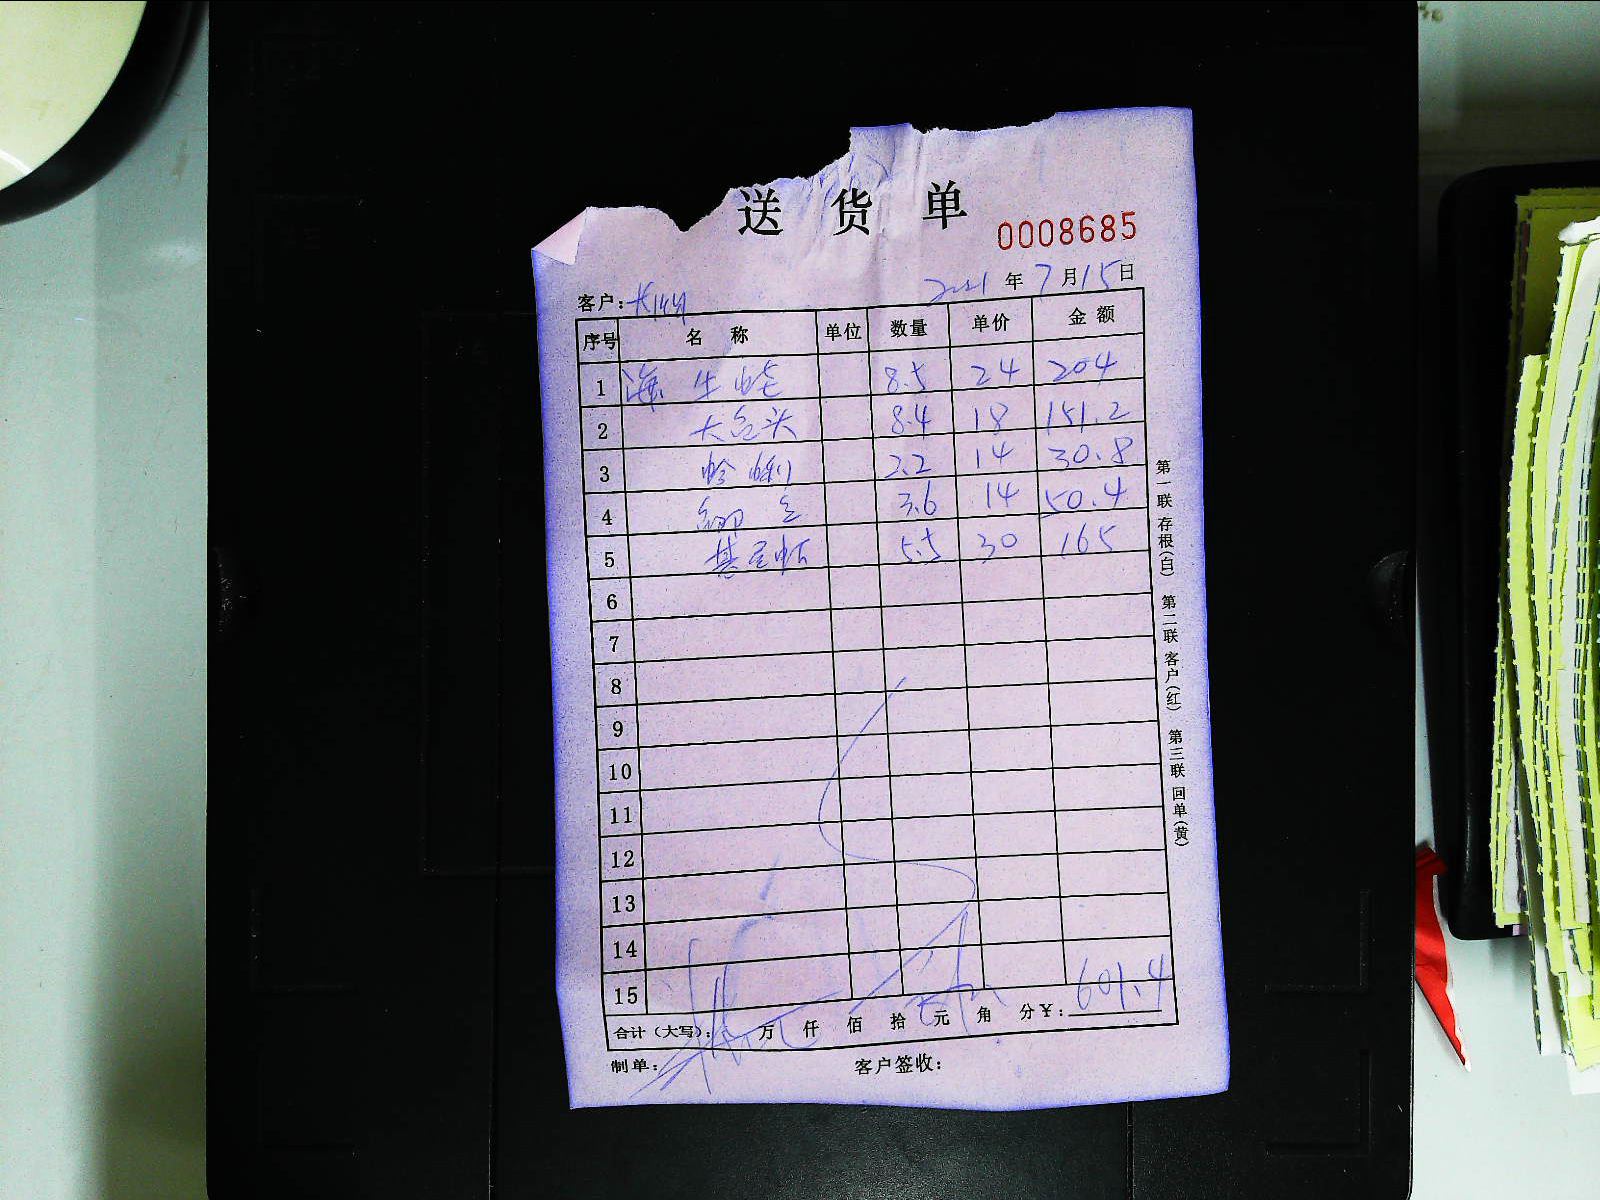 送 货 单
0008685
2021 年 7 月 15 日
客户：
序号 名 称 单位 数量 单价 金 额
1 海 生蚝 8.5 24 204
2 大鱼头 8.4 18 151.2
3 蛤蜊 2.2 14 30.8
4 3.6 14 50.4
5 基尾虾 5.5 30 165
6
7
8
9
10
11
12
13
14
15
合计（大写）： 万 仟 佰 拾 元 角 分￥：601.4
制单： 客户签收：
第一联 存根（白） 第二联 客户（红） 第三联 回单（黄）